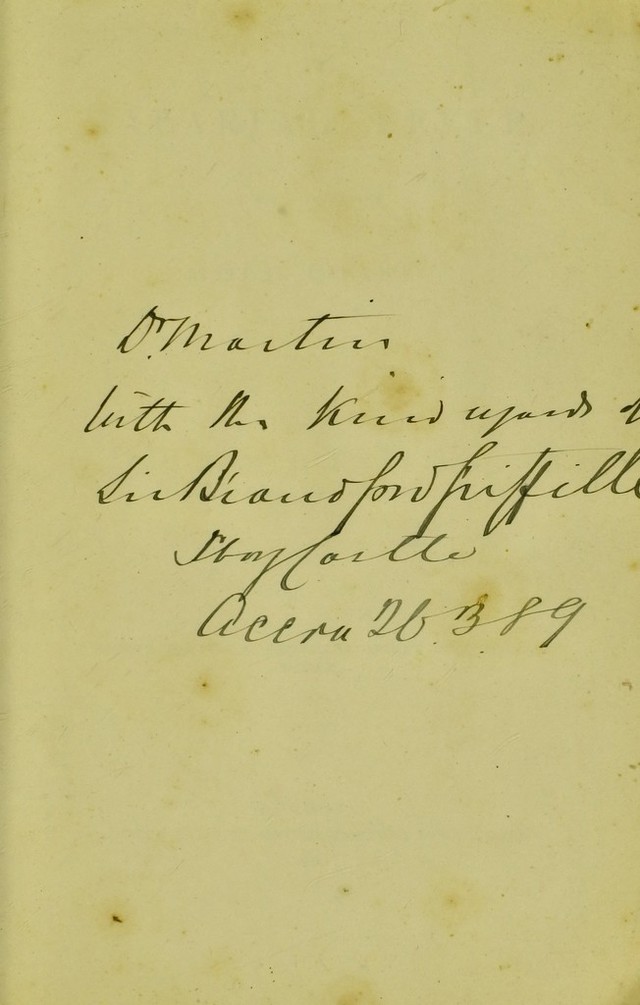 Dr. Martin
With the kind regards of
Sir Brandford Griffith
Castle
Accra 26.3 89